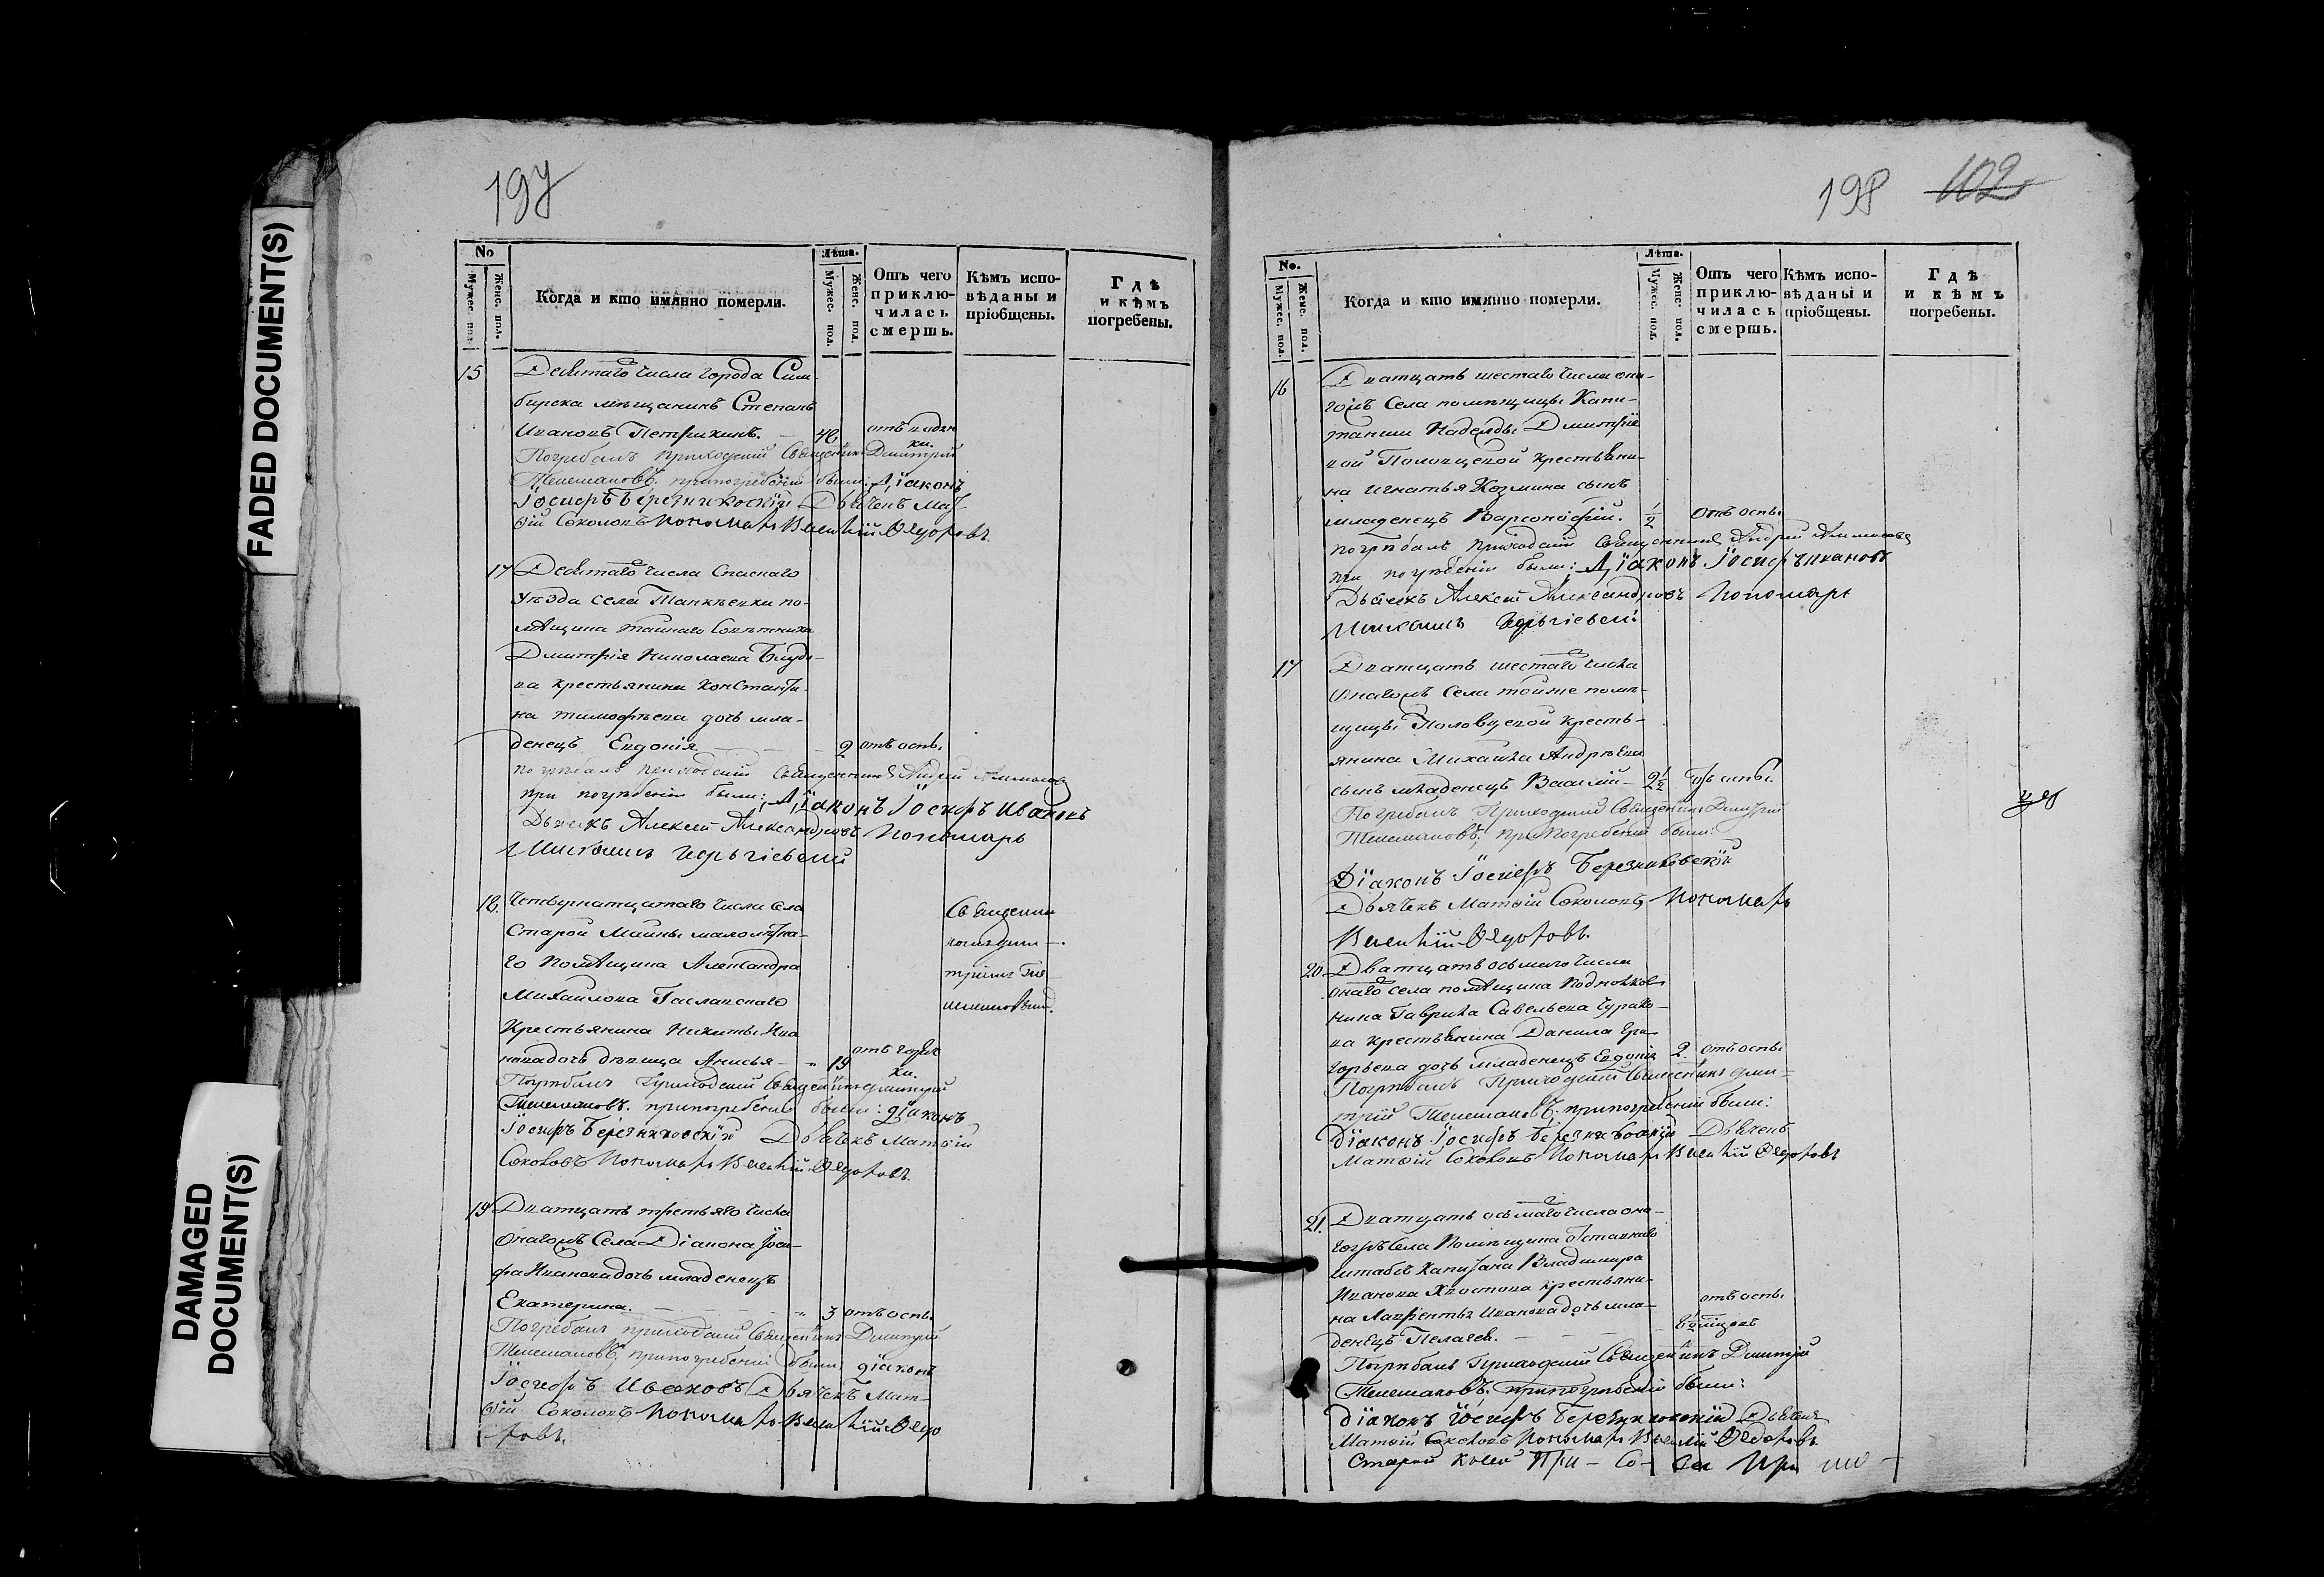 FADED DOCUMENT(S)
DAMAGED
DOCUMENT(S)
197
No
Лѣта.
Мужес. пол.
Женс. пол.
Когда и кто имянно померли.
Мужес. пол.
Женс. пол.
Отъ чего
приклю-
чилась
смерть.
Кѣмъ испо-
вѣданы и
пріобщены.
Гдѣ
и кѣмъ
погребены.
15 Девятаго числа города Сим-
бирска мѣщанинъ Степанъ
Ивановъ Петрихинъ. — отъ водян
ки.
Погребалъ приходскій Священникъ Дмитрій
Телешановъ; припогребеніи были: Діаконъ
Іосифъ Березниковскій Дьячекъ Мат-
ѳій Соколовъ Пономарь Василій Ѳедотовъ.
17 Девятаго числа Спаскаго
уѣзда села Танкѣевки по-
мѣщика тайнаго Совѣтника
Дмитрія Николаева Блудо-
ва крестьянина Константи-
на Тимофѣева дочь мла-
денецъ Евдокія — 2 отъ оспы
погребалъ приходскій Священникъ Андрей
при погребеніи были: Діаконъ Іосифъ Ивановъ
Дьячекъ Алексѣй Александровъ Пономарь
18. Четырнатцатаго числа села Священни
Старой Майны малолѣтна- комъ Дми-
го Помѣщика Александра тріемъ Теле
Михайлова
Крестьянина Никиты Ива
нова дочь дѣвица Анисья — „ 19 отъ горяч
ки.
Погребалъ Приходскій Священникъ Дмитрій
Телешановъ. припогребеніи были: Діаконъ
Іосифъ Березниковскій Дьячекъ Матѳій
Соколовъ Пономарь Василій Ѳедотовъ.
19 Дватцать третьяго числа
онагожъ Села Діакона Іоси-
фа Иванова дочь младенецъ
Екатерина. — „ 3 отъ оспы
Погребалъ приходскій Священникъ Дмитрій
Телешановъ; припогребеніи были: діаконъ
Іосифъ Ивановъ Дьячекъ Мат-
ѳій Соколовъ Пономарь Василій Ѳедо
товъ.
198 102
No.
Лѣта.
Мужес. пол.
Женс. пол.
Когда и кто имянно померли.
Мужес. пол.
Женс. пол.
Отъ чего
приклю-
чилась
смерть.
Кѣмъ испо-
вѣданы и
пріобщены.
Гдѣ
и кѣмъ
погребены.
16 Дватцать шестаго числа она-
гожъ Села помѣщицы Капи-
танши Надежды Дмитріе
вой Половцовой крестьяни-
на Игнатья Козмина сынъ
младенецъ Варсонофій. 1/2 отъ оспы
погребалъ приходскій Священникъ Андрей
при погребеніи были: Діаконъ Іосифъ Ивановъ
Дьячекъ Алексѣй Александровъ Пономарь
17 Дватцать шестаго числа
онагожъ Села тойже помѣ-
щицы Половцовой кресть-
янина Михайла Андрѣева
сынъ младенецъ Василій — 2 1/2
Погребалъ Приходскій Священникъ Дмитрій
Телешановъ; припогребеніи были:
Діаконъ Іосифъ Березниковскій
Дьячекъ Матѳій Соколовъ, Пономарь
Василій Ѳедотовъ.
20 Дватцать осьмаго числа
онаго села помѣщика Подполков
ника Гаврила Савельева
ва крестьянина Данила Гри-
горьева дочь младенецъ Евдокія 2. отъ оспы
Погребалъ Приходскій Священникъ Дми-
трій Телешановъ. припогребеніи были:
Діаконъ Іосифъ Березниковскій Дьячекъ
Матѳій Соколовъ Пономарь Василій Ѳедотовъ
21. Дватцать осьмаго числа она-
гожъ Села Помѣщика отставнаго
штабсъ Капитана Владимира
Иванова Хвостова крестьяни-
на Лаврентья Иванова дочь мла- отъ оспы
денецъ Пелагея. —
Погребалъ Приходскій Священникъ Дмитрій
Телешановъ. припогребеніи были:
Діаконъ Іосифъ Березниковскій Дьячекъ
Матѳій Соколовъ Пономарь Василій Ѳедотовъ.